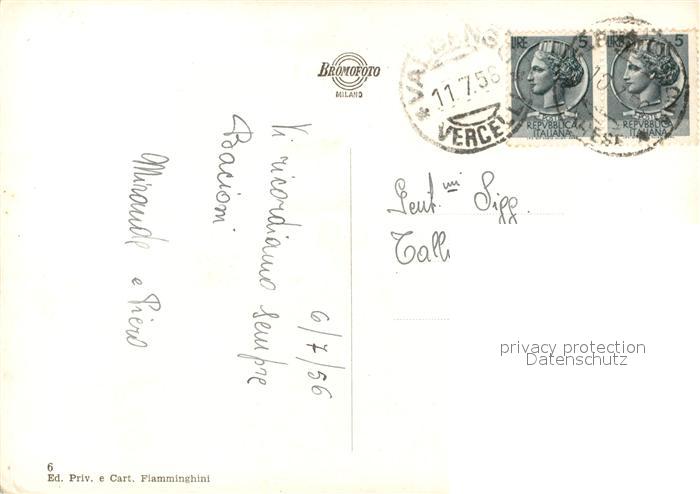 BROMOFOTO
MILANO
VALDENGO
11.7.56
VERCELLI
LIRE 5
POSTE
REPVBBLICA
ITALIANA
LIRE 5
POSTE
REPVBBLICA
ITALIANA
6/7/56
Vi ricordiamo sempre
Bacioni
Miranda e Piero
Gent.mi Sigg.
Talli
privacy protection
Datenschutz
6
Ed. Priv. e Cart. Fiamminghini